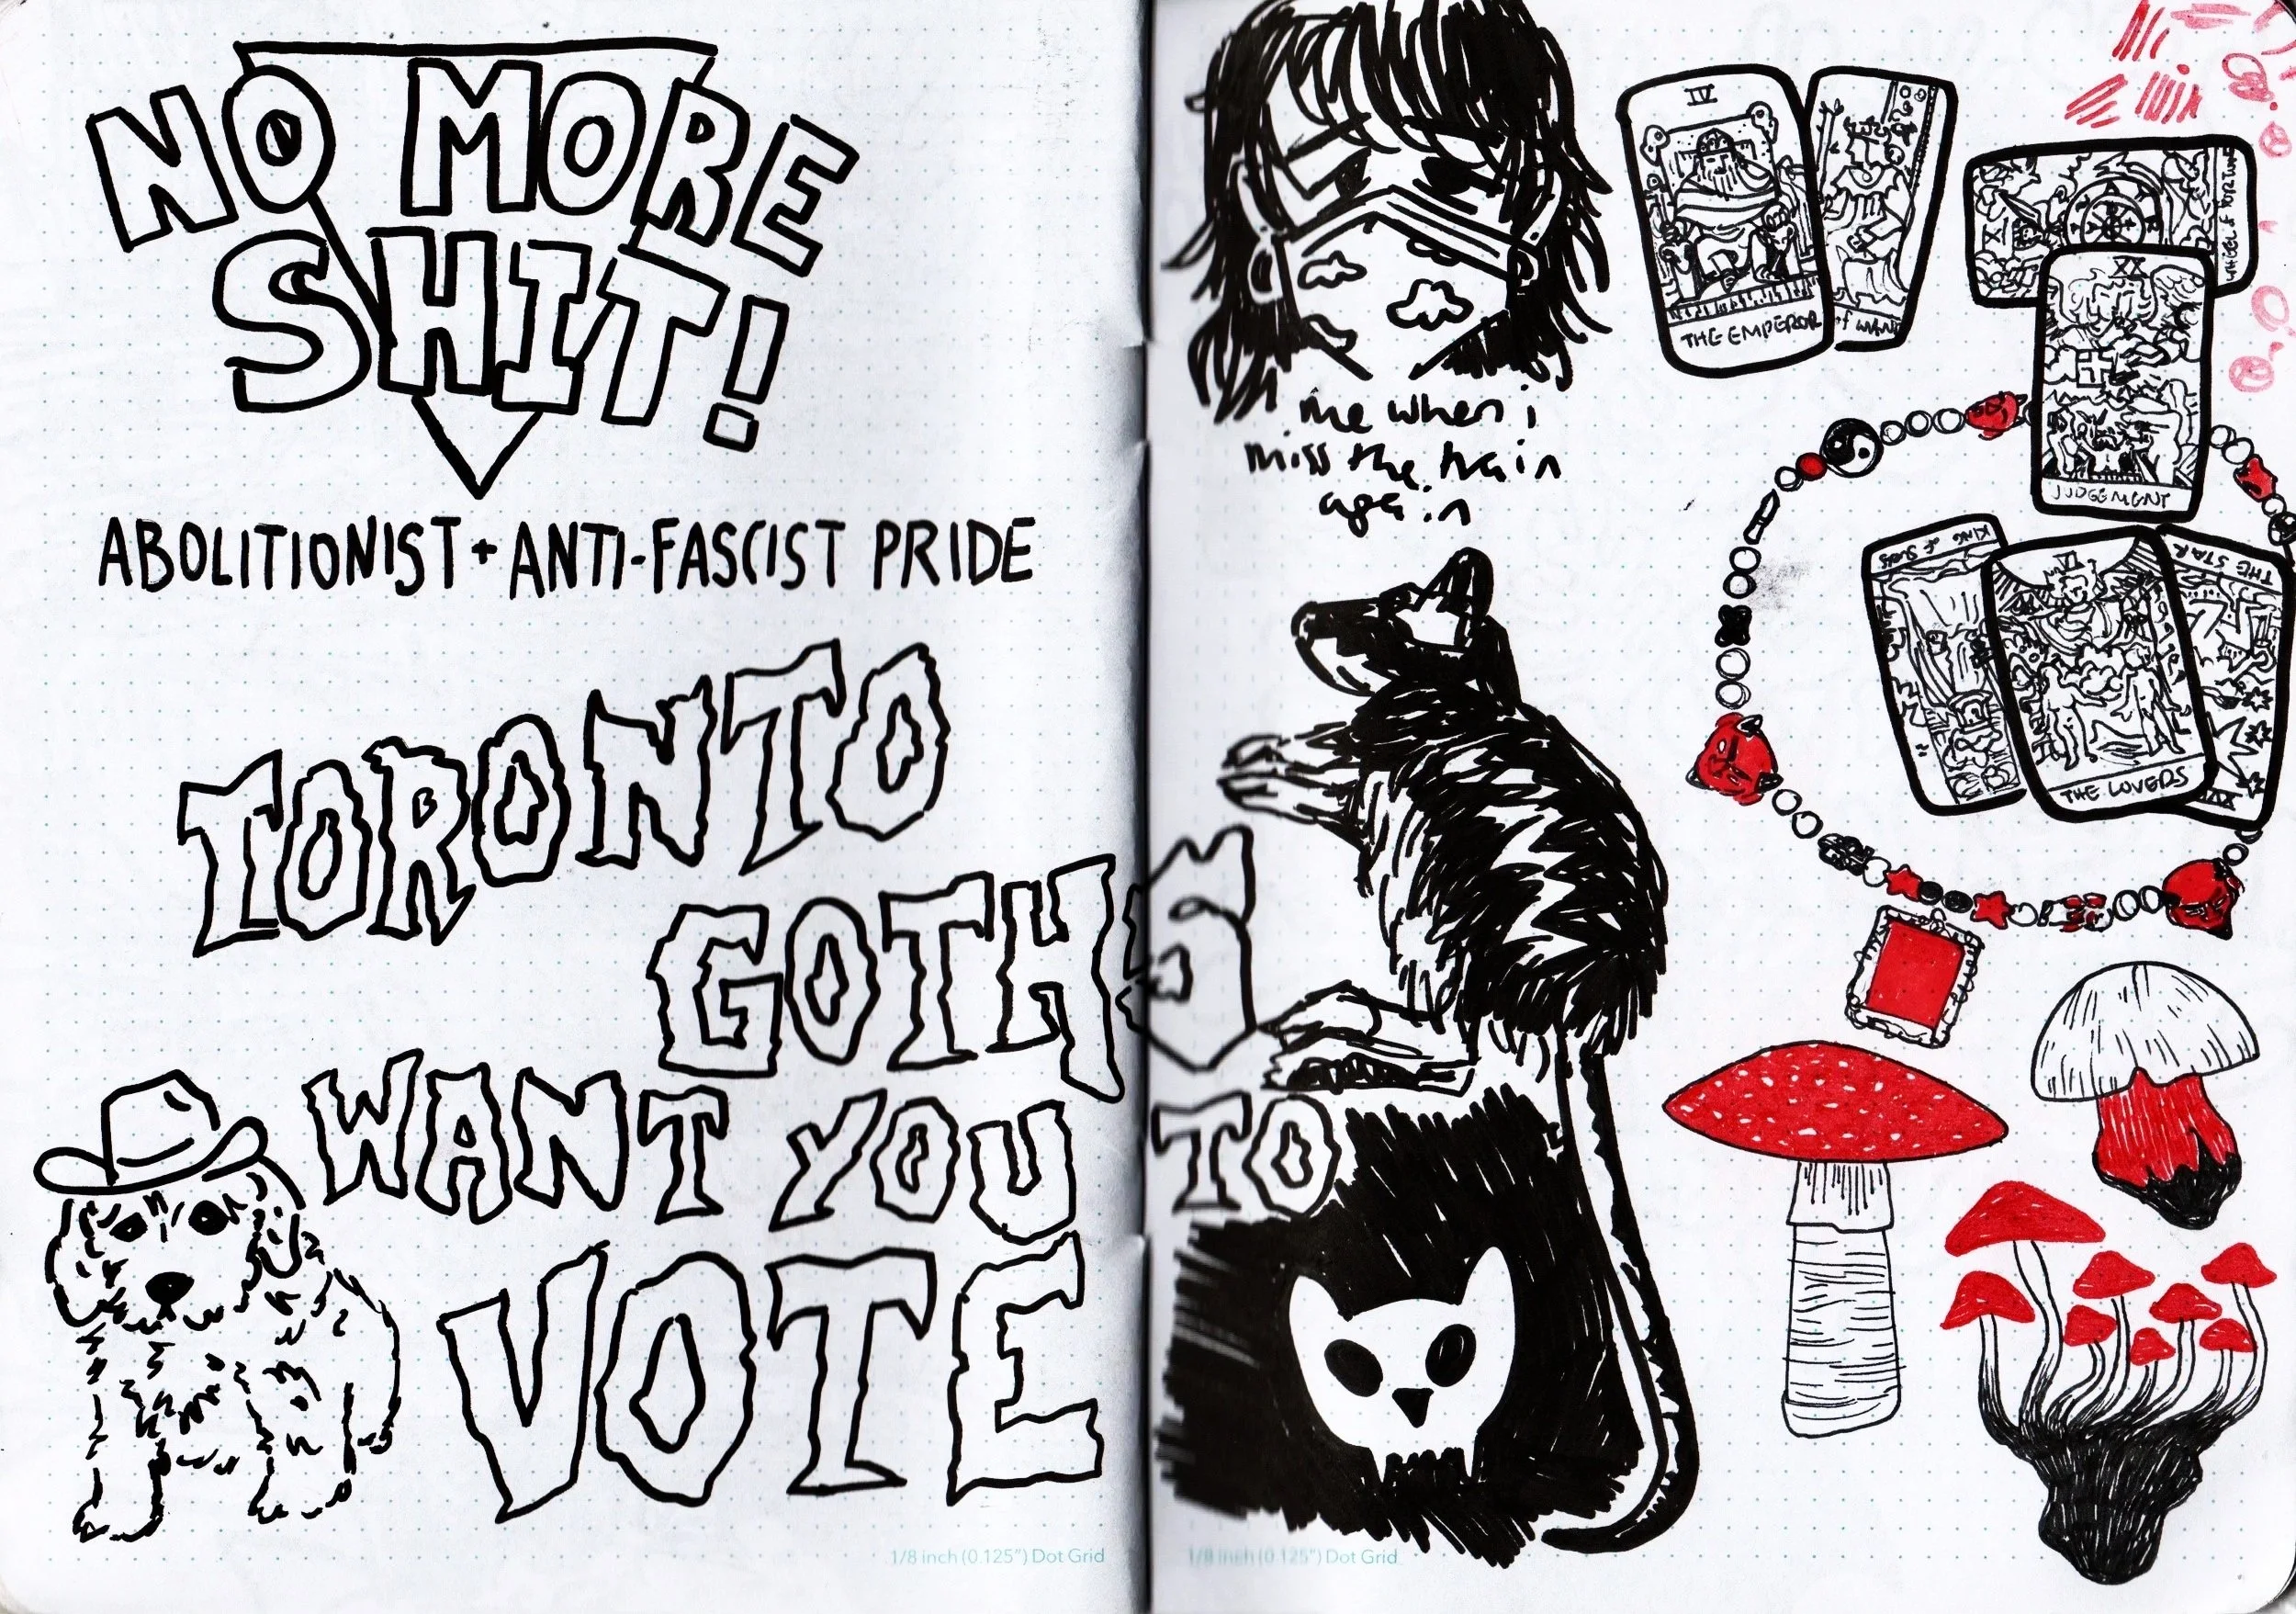 NO MORE
SHIT!
ABOLITIONIST + ANTI-FASCIST PRIDE
TORONTO
GOTHS
WANT YOU TO
VOTE
1/8 inch (0.125") Dot Grid
me when i
miss the train
again
IV
THE EMPEROR
of WAND
X
WHEEL of FORTUNE
XX
JUDGEMENT
KING of
VI
THE LOVERS
THE STAR
XVII
1/8 inch (0.125") Dot Grid